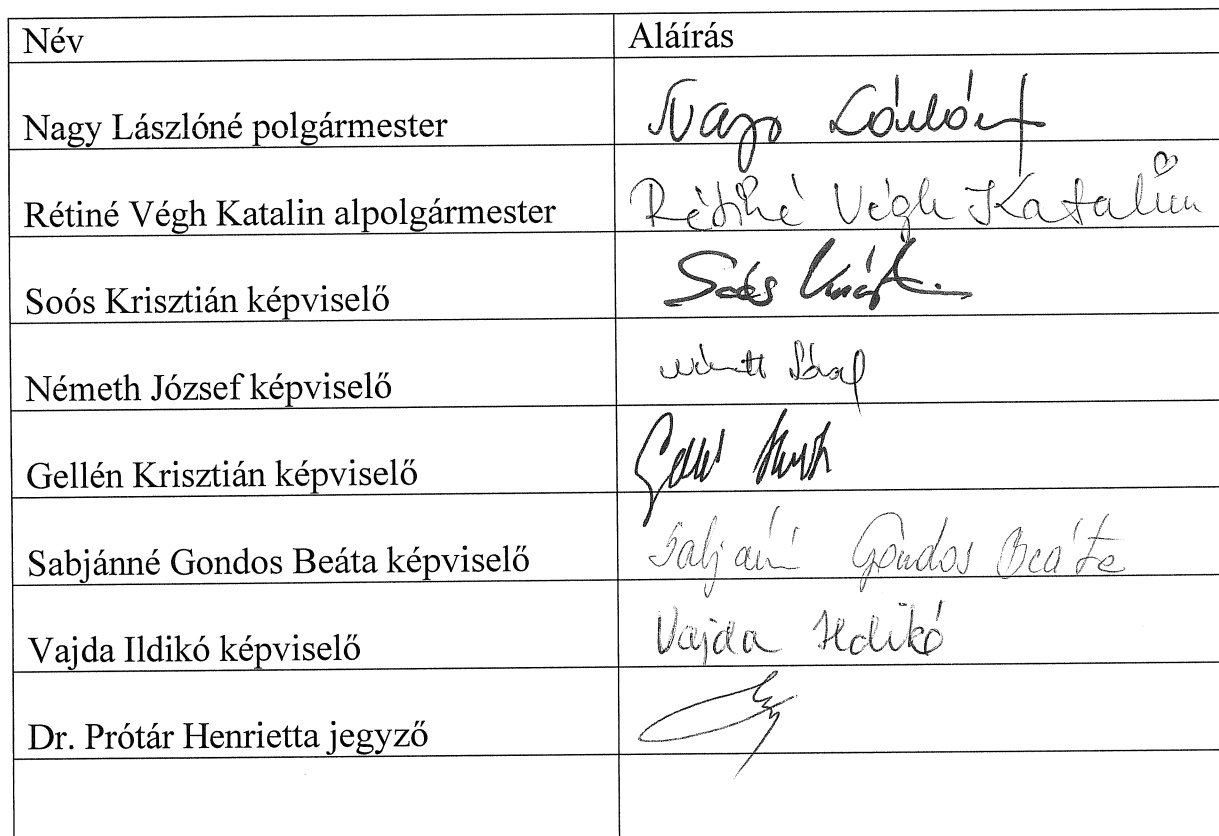 Név Aláírás
Nagy Lászlóné polgármester Nagy
Rétiné Végh Katalin alpolgármester Rétiné Végh Katalin
Soós Krisztián képviselő Soós
Németh József képviselő
Gellén Krisztián képviselő
Sabjánné Gondos Beáta képviselő Gondos Beáta
Vajda Ildikó képviselő Vajda Ildikó
Dr. Prótár Henrietta jegyző